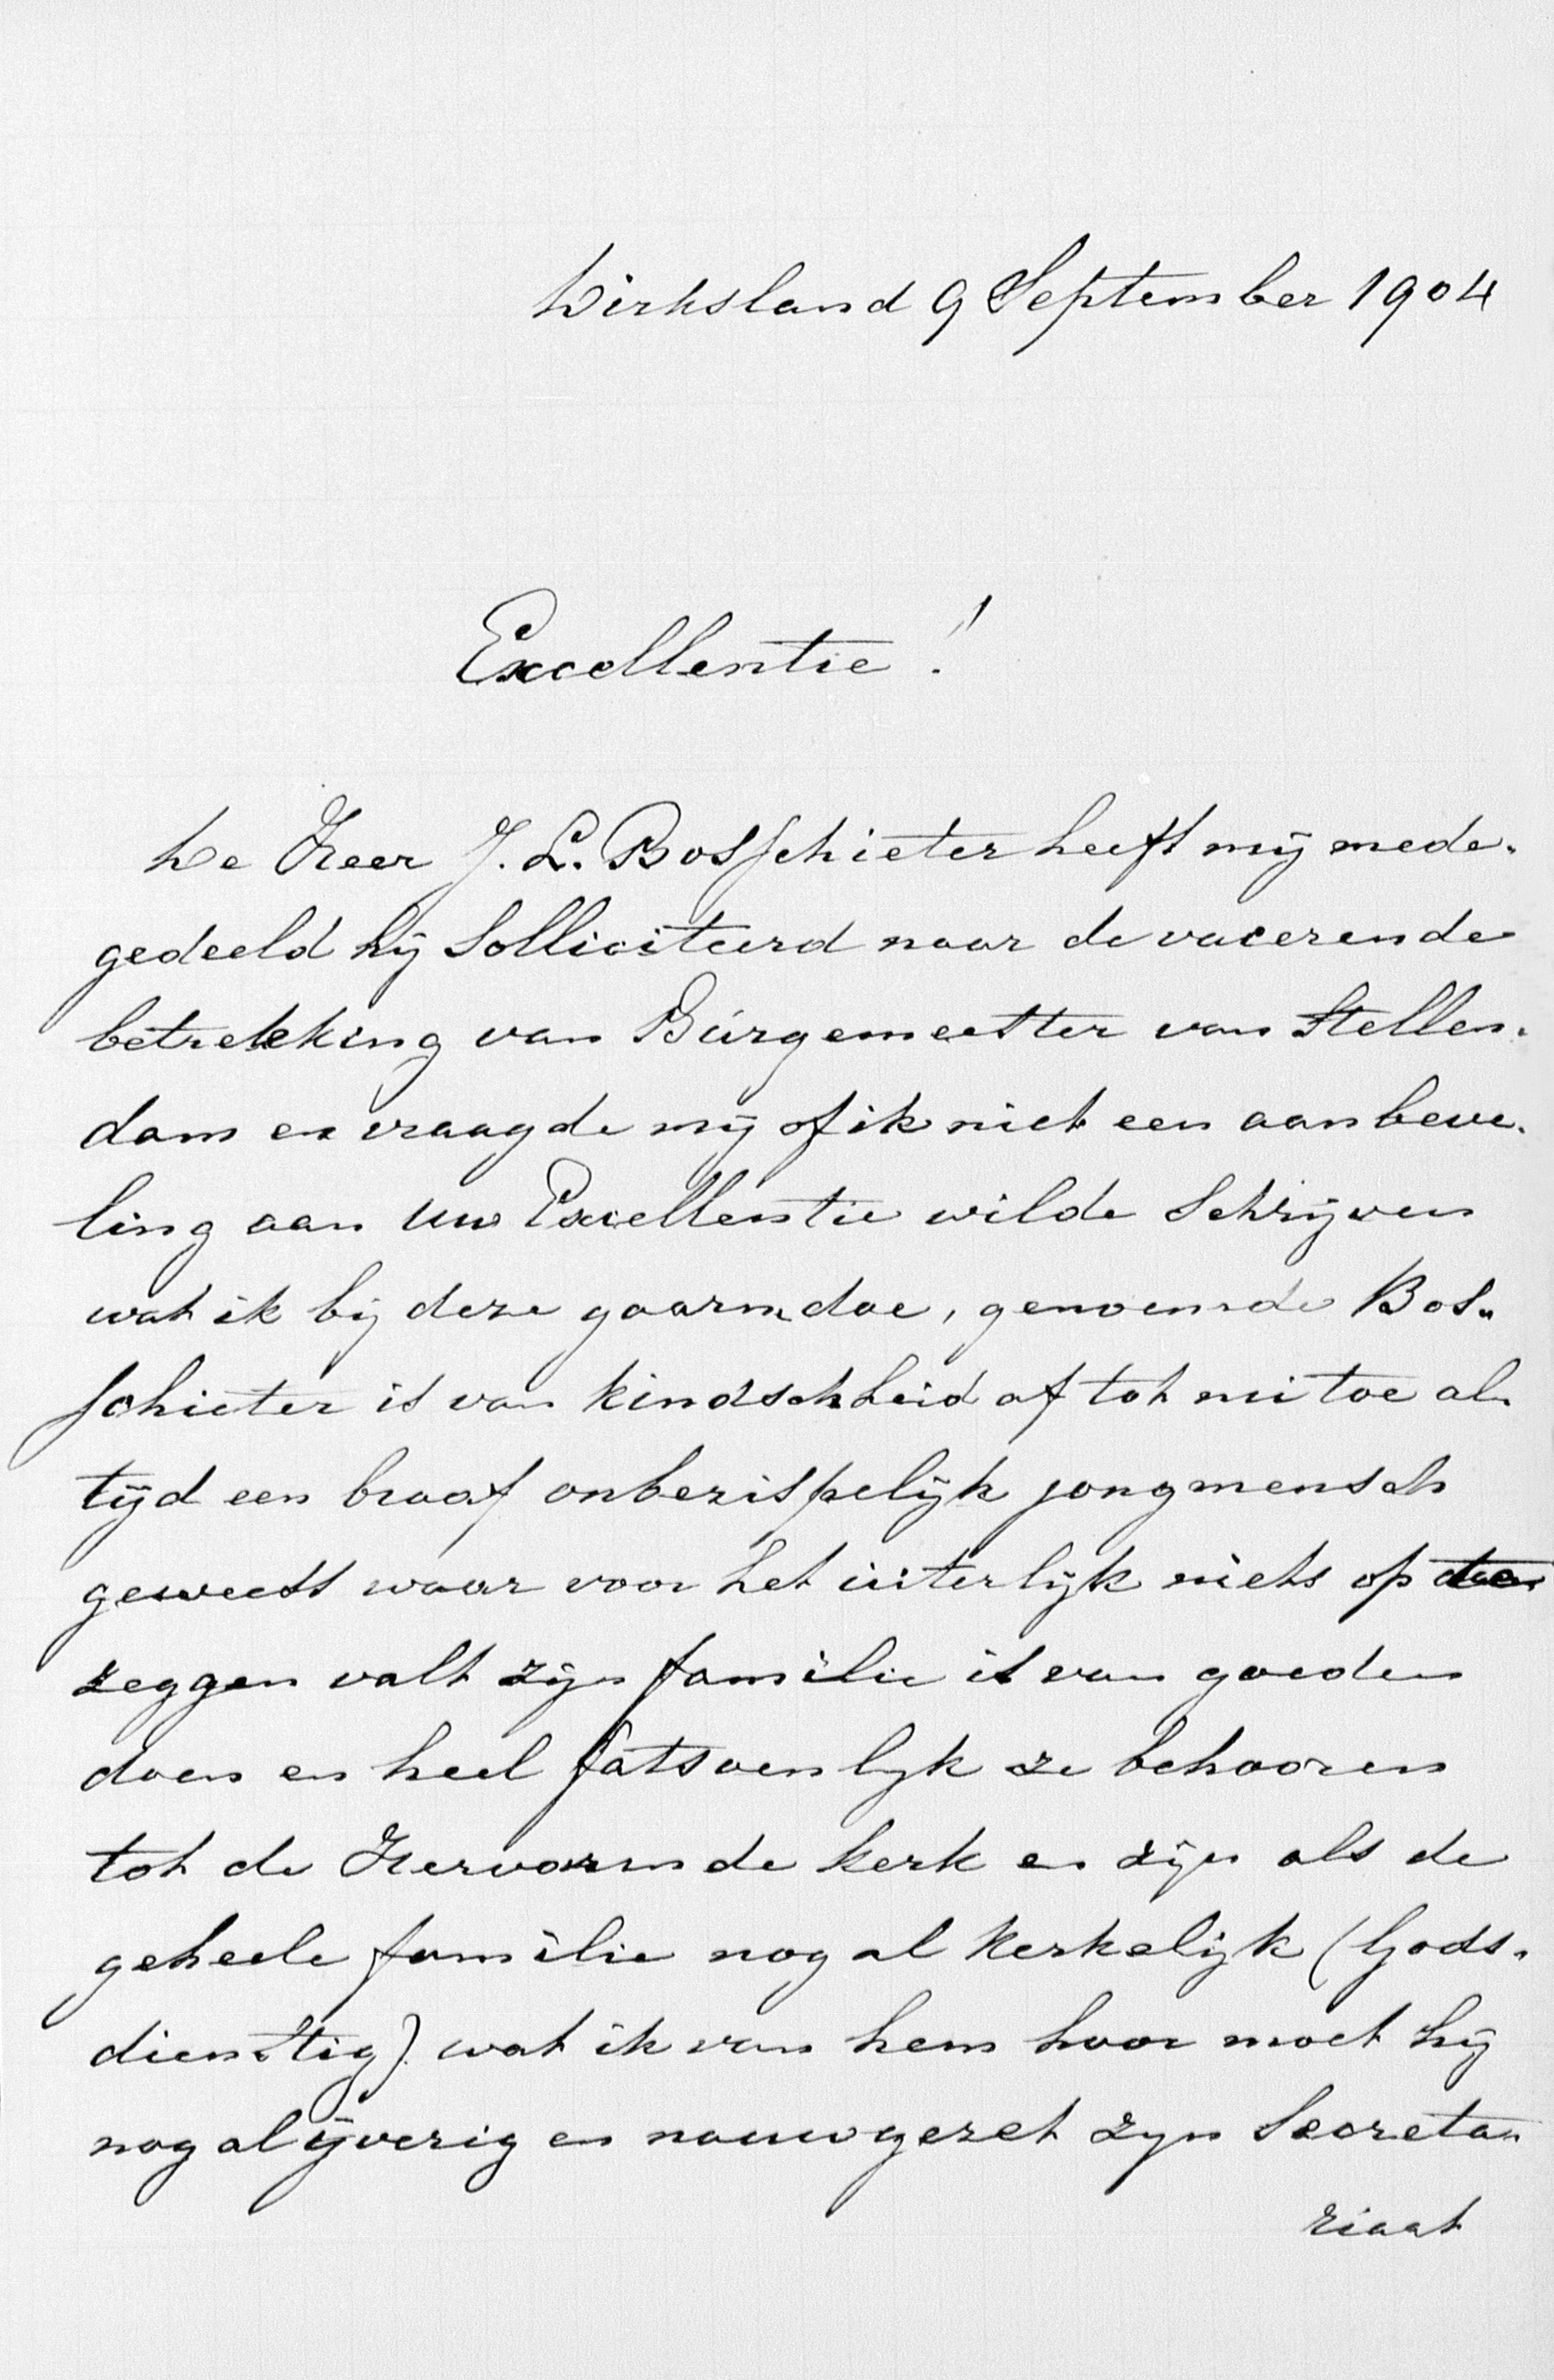 Dirksland 9 September 1904
Excellentie!
De Heer J. L. Bosschieter heeft mij mede-
gedeeld hij Solliciteerd naar de vacerende
betrekking van Burgemeester van Stellen-
dam en vraagde mij of ik niet een aanbeve-
ling aan Uw Excellentie wilde Schrijven
wat ik bij deze gaarn doe, genoemde Bos-
schieter is van kindschheid af tot nu toe al-
tijd een braaf onberispelijk jongmensch
geweest waar voor het uiterlijk niets op
zeggen valt zijn familie is van goeden
doen en heel fatsoenlijk ze behooren
tot de Hervormde kerk en zijn als de
geheele familie nog al kerkelijk (Gods-
dienstig). wat ik van hem hoor moet hij
nog al ijverig en nauwgezet zijn Secreta-
riaat